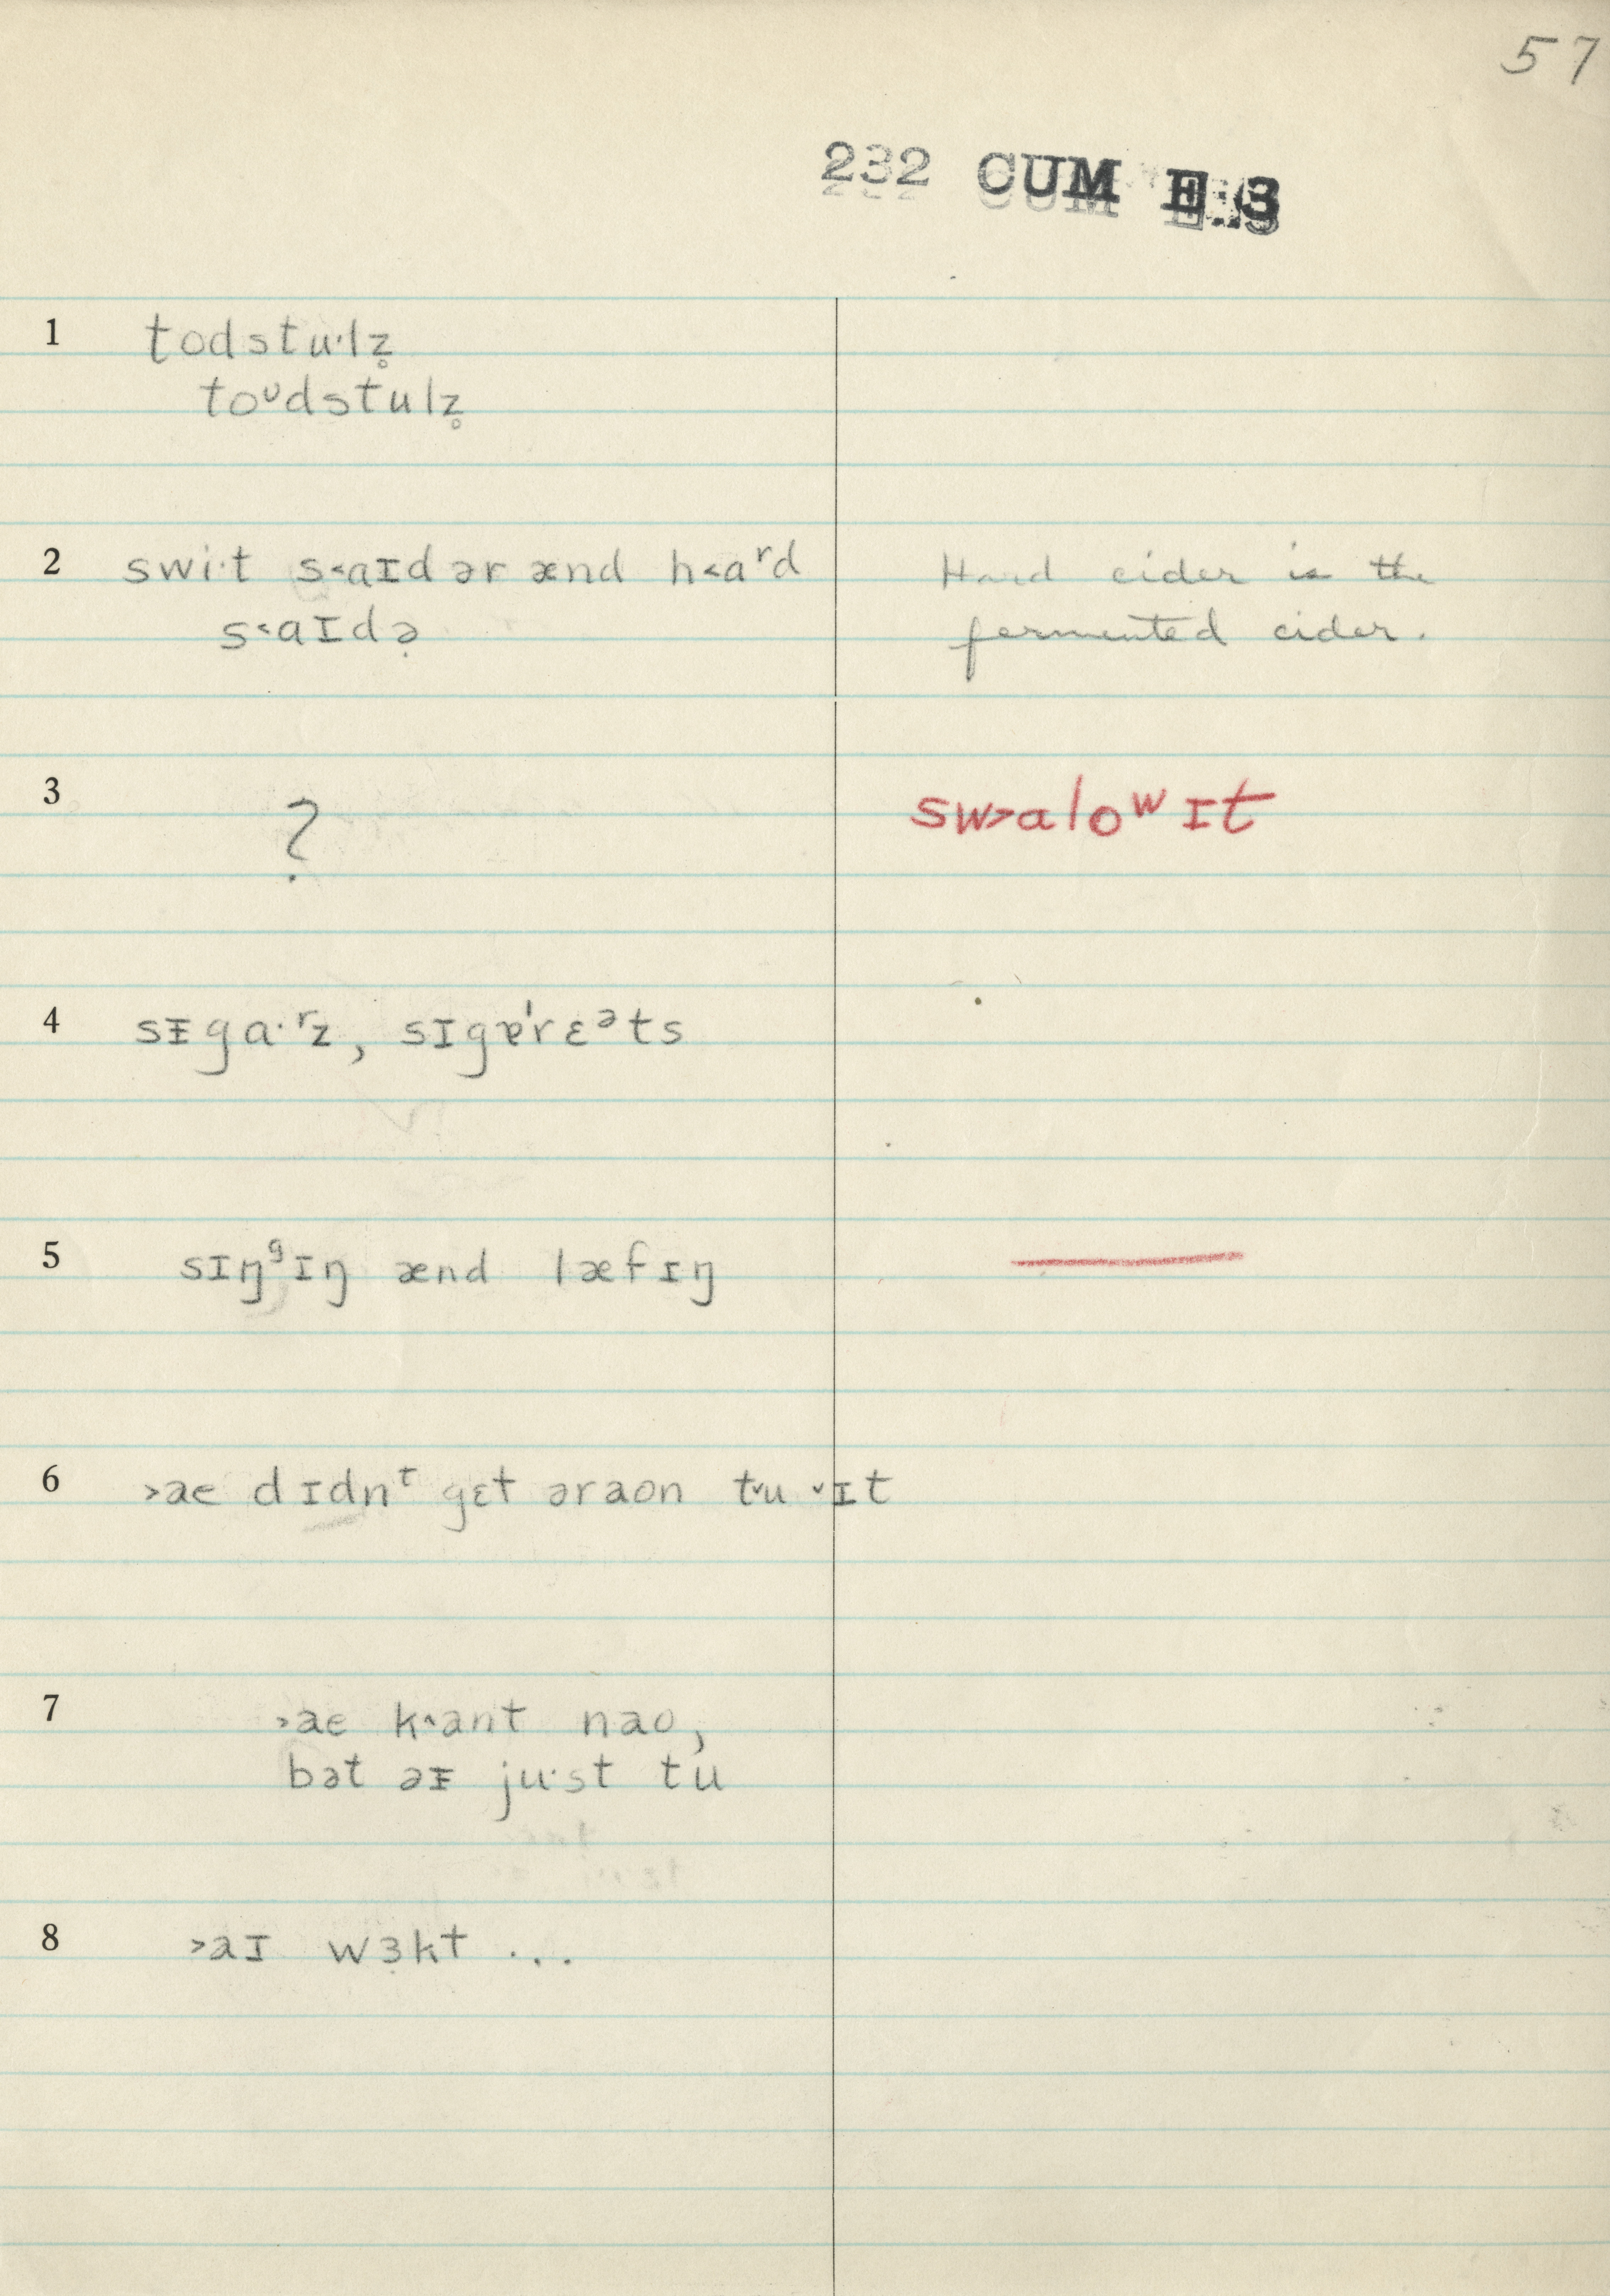 57
232 CUM E:3
1 todstu·lz̥
toᶷdstulz̥
2 swi·t s˂aɪdər ænd h˂aʳd
s˂aɪdə̣
Hard cider is the
fermented cider.
3 ?
sw˃aloʷ ɪt
4 sᵻga·ʳz, sɪgɐ'rɛᵊts
5 sɪŋᶢɪŋ ænd læfɪŋ
6 ˃ae dɪdnᵗ gɛt əraon t˅u ˅ɪt
7 ˃ae k˄ant nao,
bət əᵻ ju·st tu
8 ˃aɪ wɜ̣kt ...